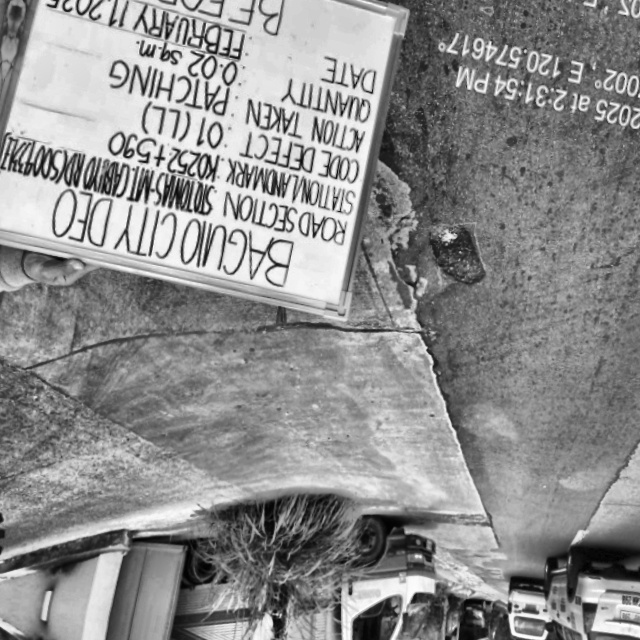 BAGUIO CITY DEO
ROAD SECTION
STATION/LANDMARK: K0252+590
CODE DEFECT 01 (LL)
ACTION TAKEN PATCHING
QUANTITY 0.02 sq.m.
DATE FEBRUARY 11, 2025
2025 at 2:31:54 PM
002°, E 120.574617°